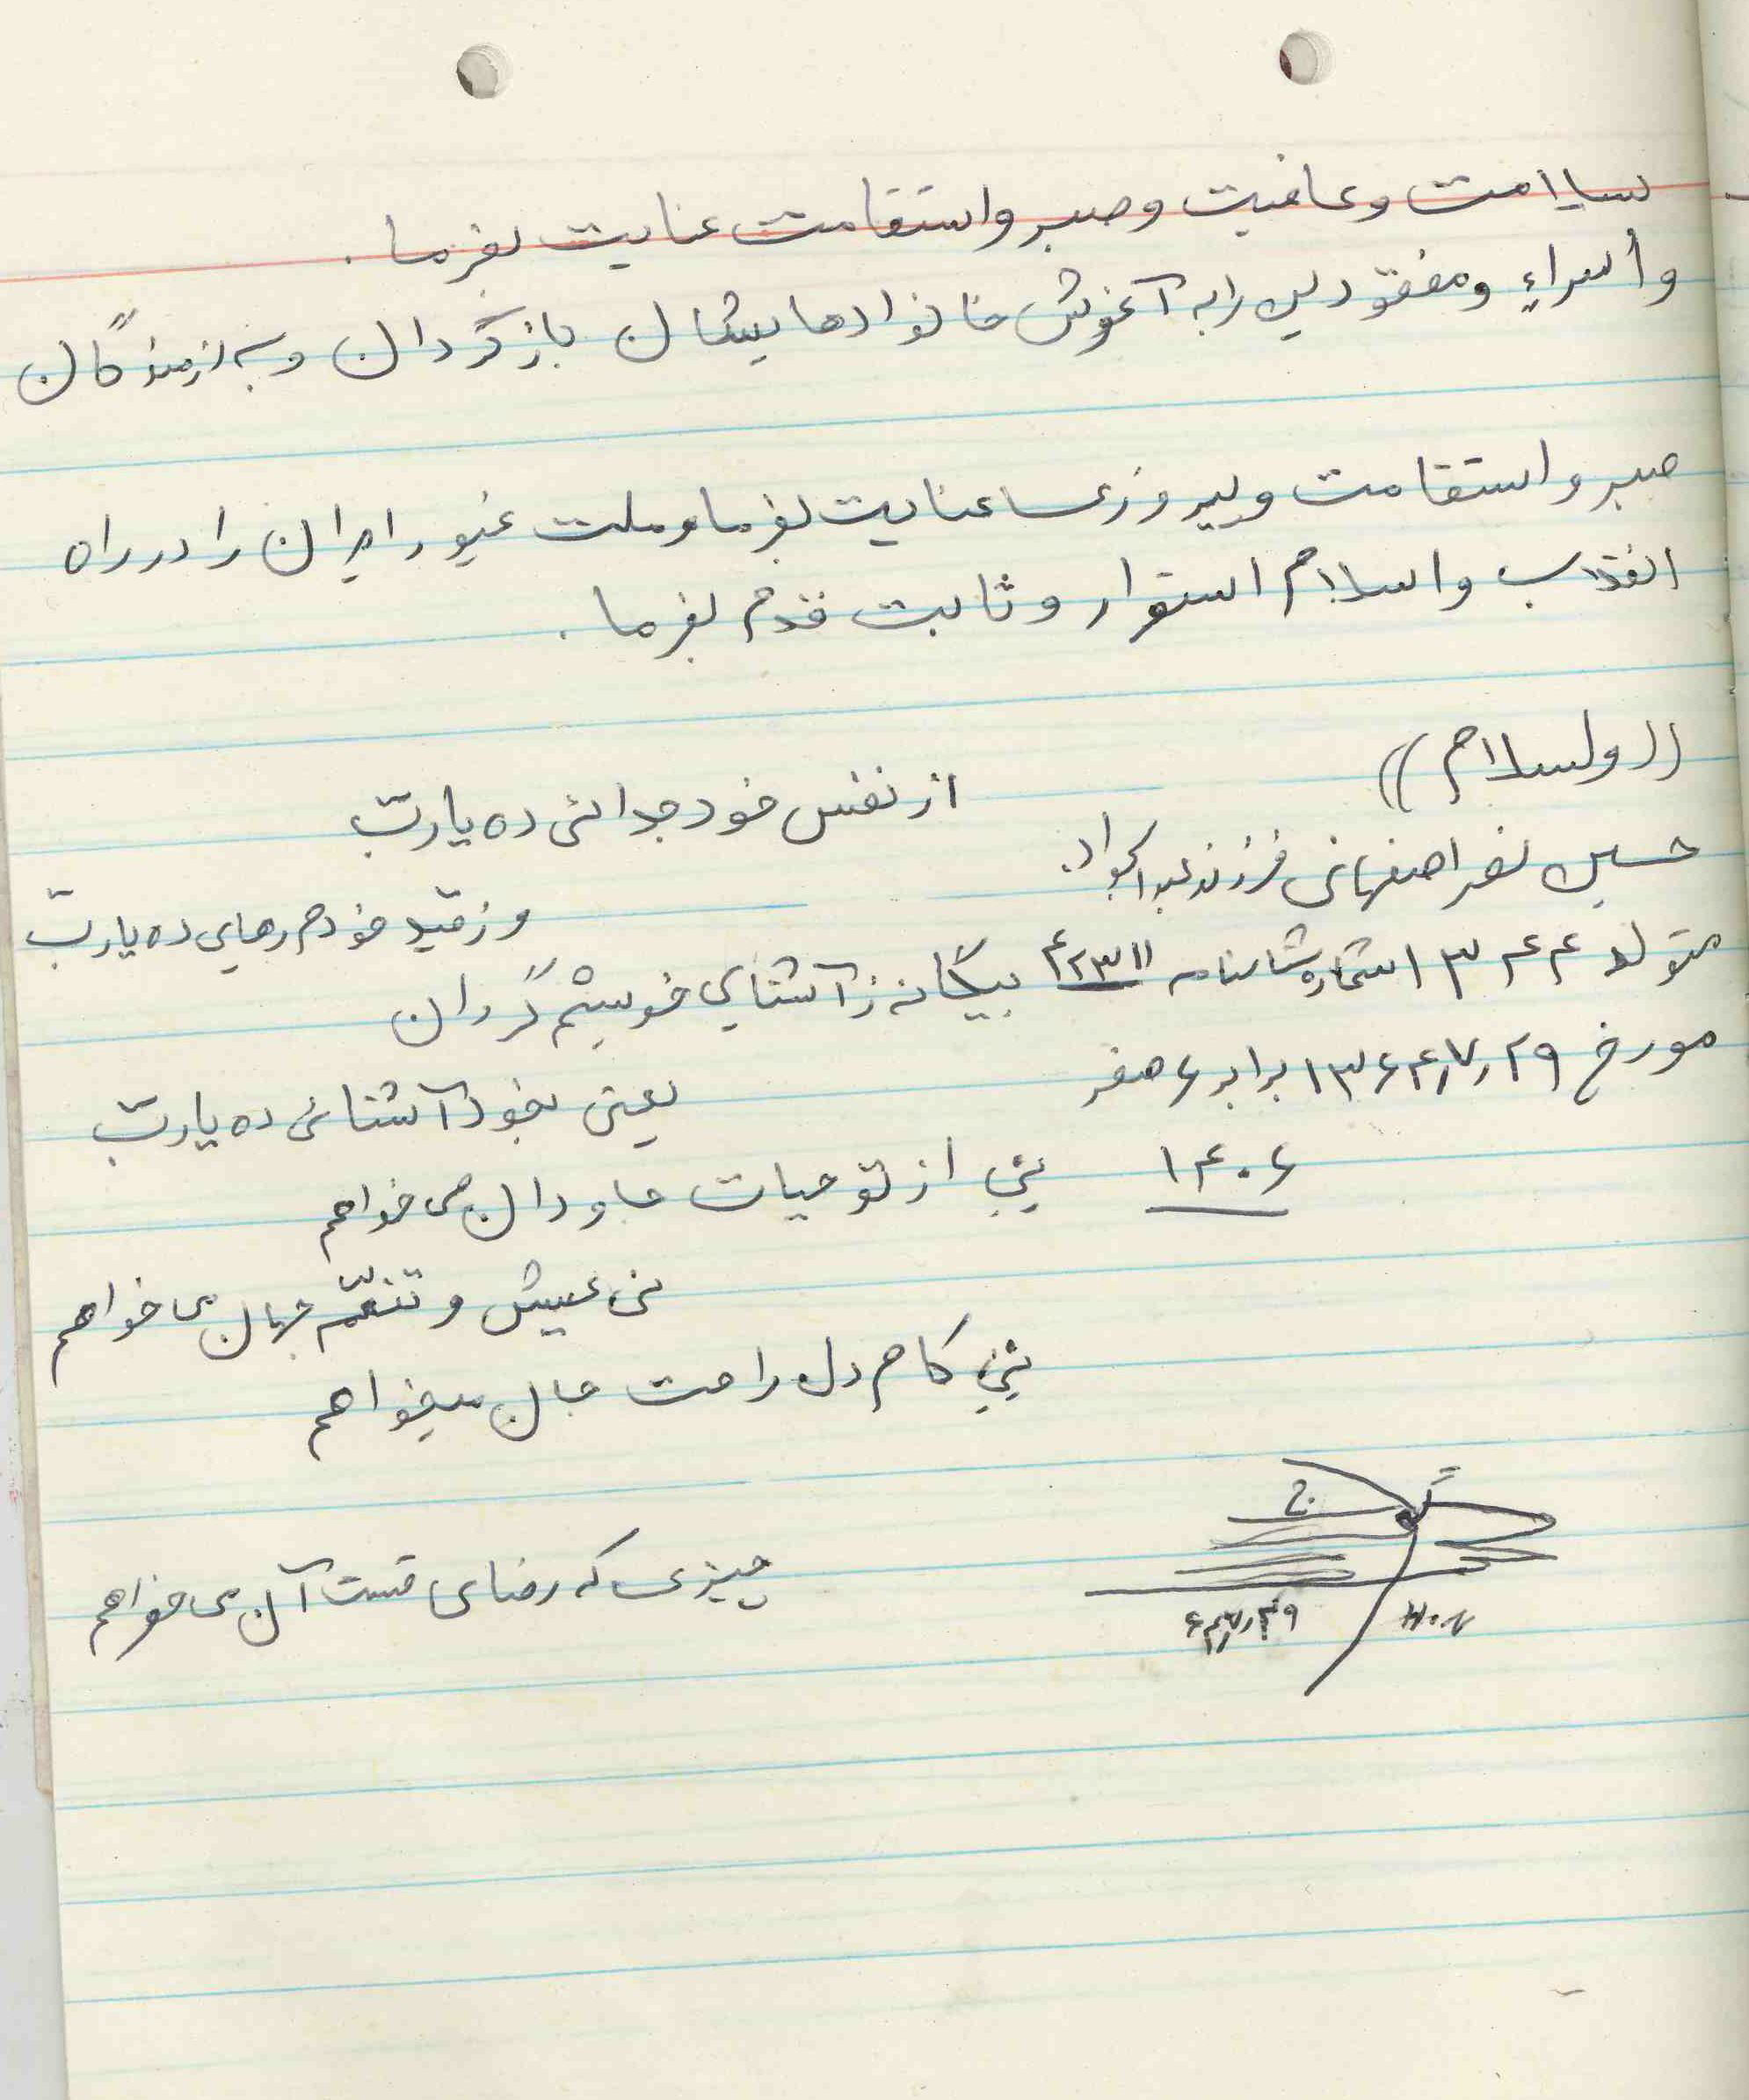 سلامت و عافیت و صبر و استقامت عنایت بفرما .
و أسراءِ و مفقودین را به آغوش خانوادهایشان بازگردان و به رزمندگان
صبر و استقامت و پیروزی عنایت بفرما و ملت غیور ایران را در راه
انقلاب و اسلام استوار و ثابت قدم بفرما .
((ولسلام))
حسین نصر اصفهانی فرزند عبدالجواد.
متولد ۱۳۴۴ شماره شناسنامه ۴۲۳۱۱
مورخ ۱۳۶۴٫۷٫۲۹ برابر ۶ صفر
۱۴۰۶
از نفس خود جدائی ده یارب
وز قید خودم رهایی ده یارب
بیگانه ز آشنایی خویشم گردان
یعنی بخود آشنائی ده یارب
نی از تو حیات جاودان می خواهم
نی عیش و تنعّم جهان می خواهم
نی کام دل و راحت جان میخواهم
چیزی که رضای تست آن می خواهم